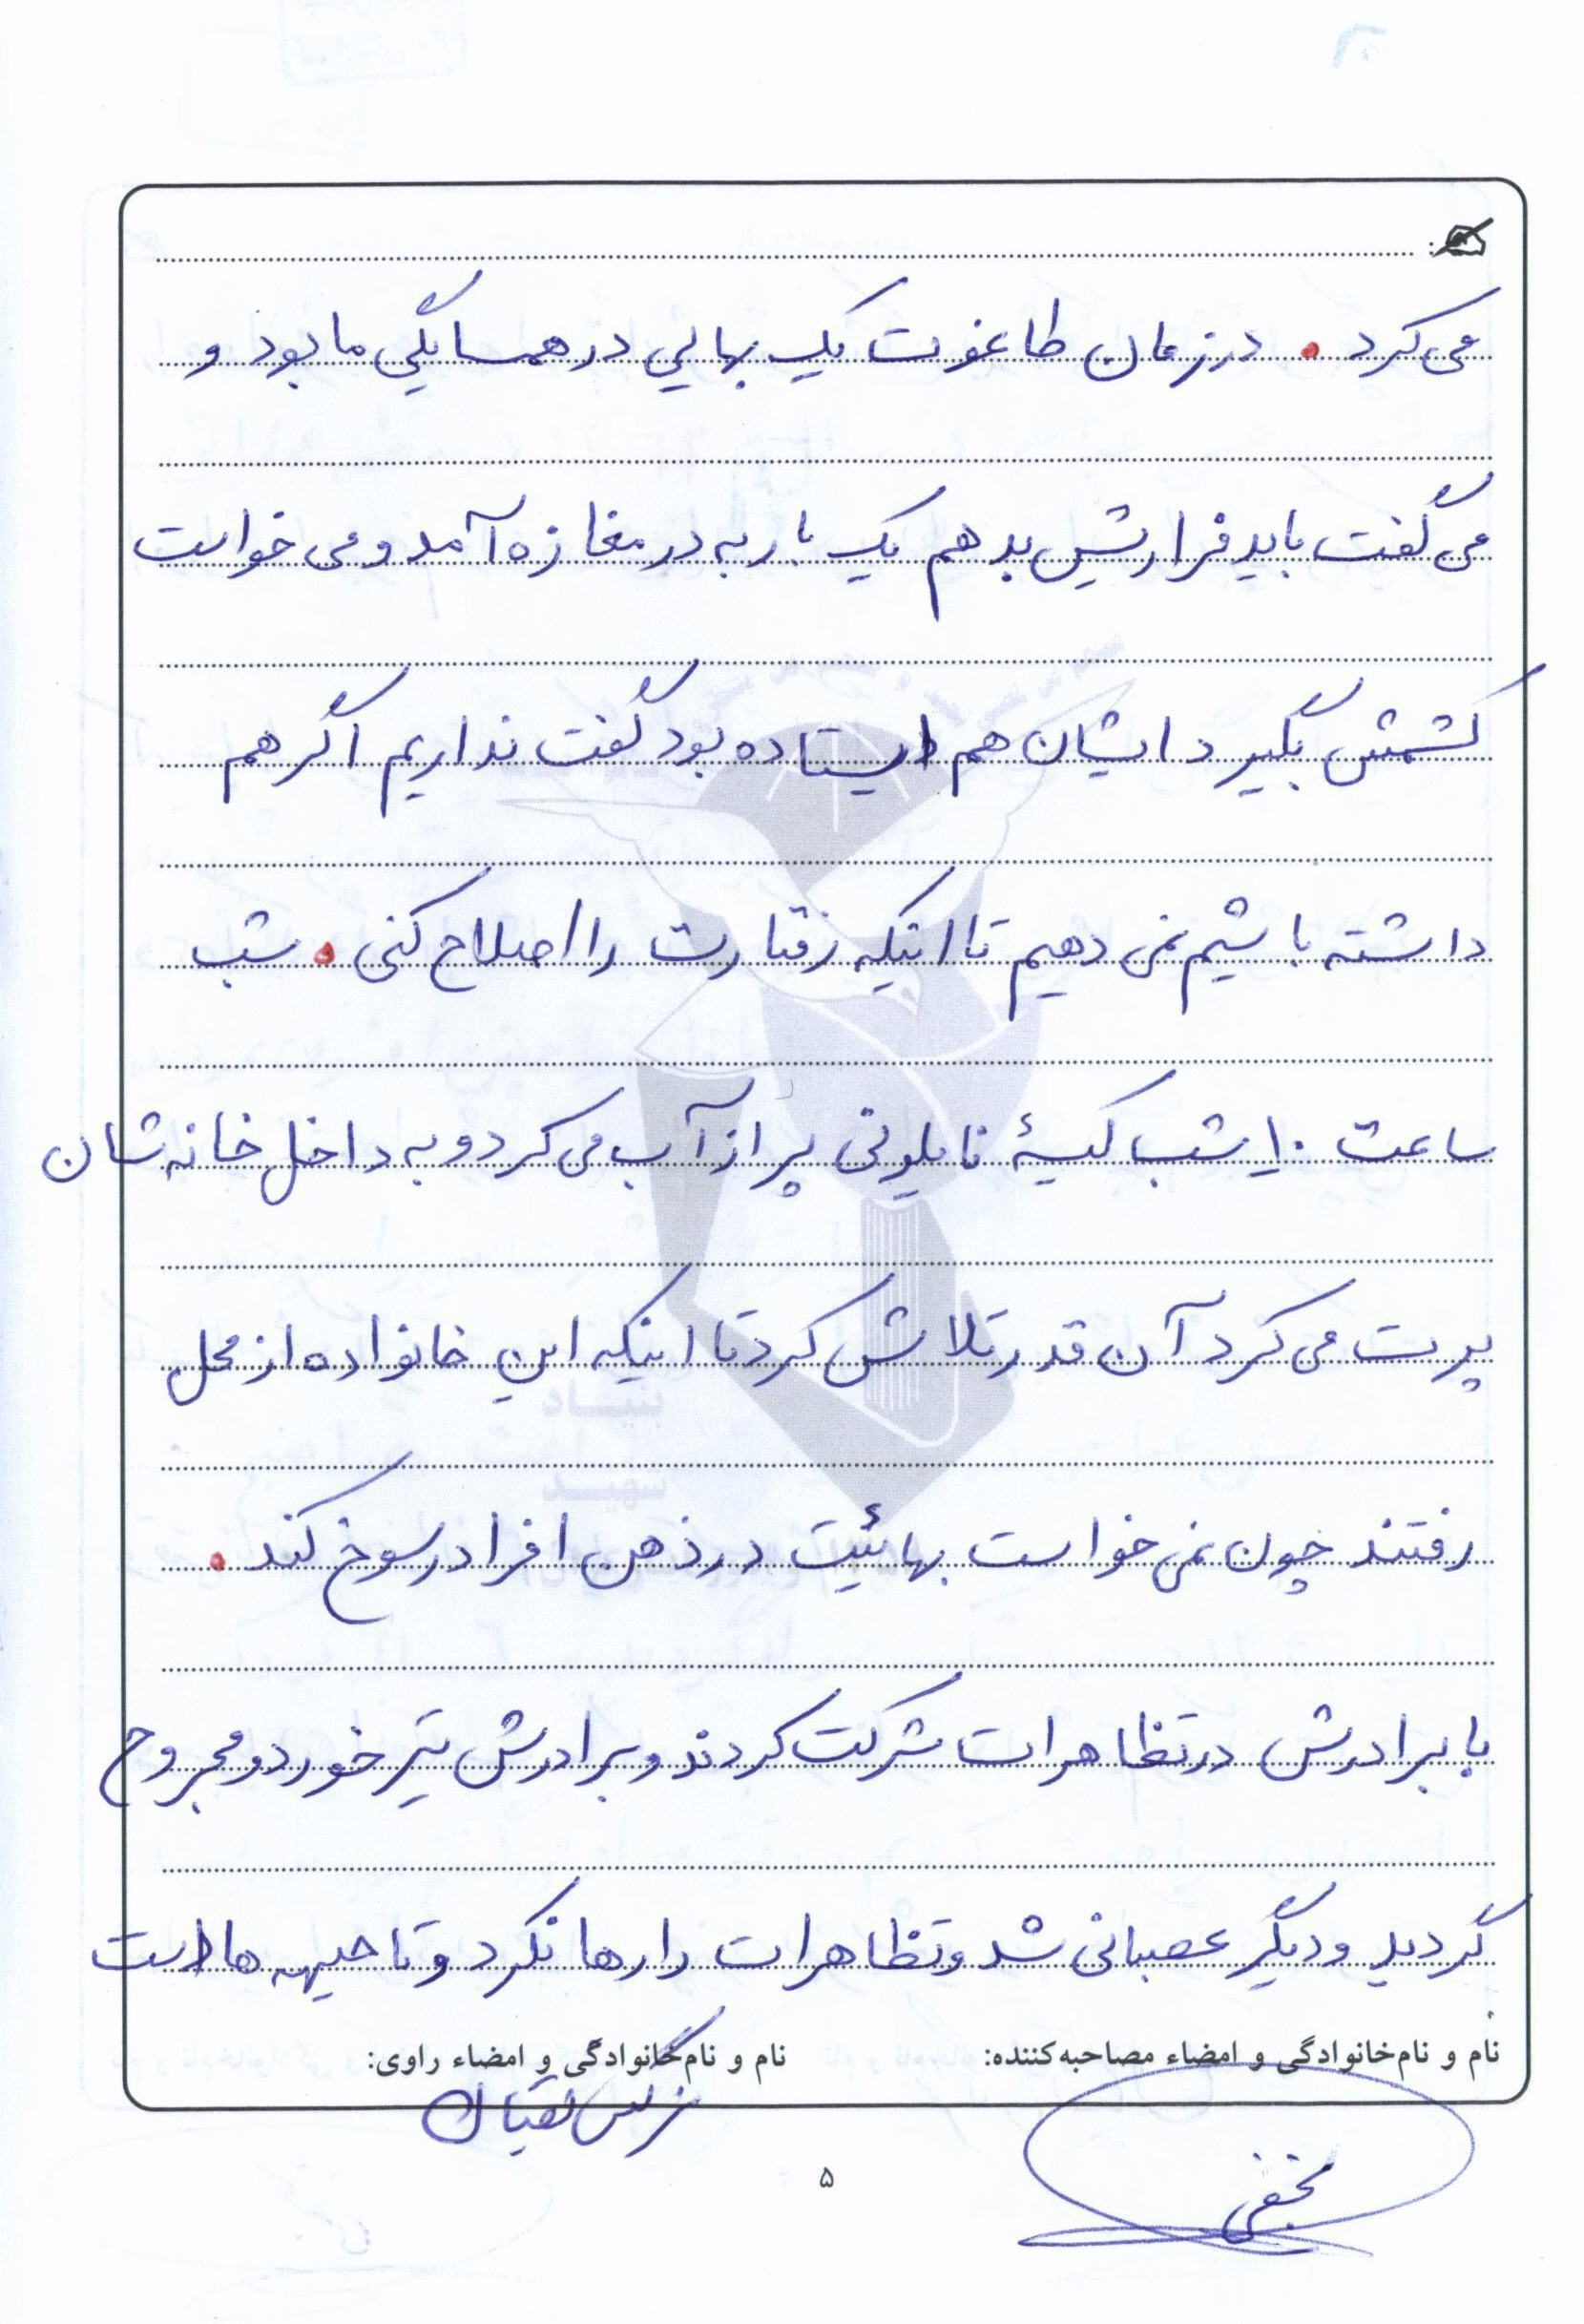 می کرد . در زمان طاغوت یک بهایی در همسایگی ما بود و
می گفت باید فراریش بدهم یک بار به در مغازه آمد و می خواست
کشمش بگیرد ایشان هم ایستاده بود گفت نداریم اگر هم
داشته باشیم نمی دهیم تا اینکه رفتارت را اصلاح کنی . شب
ساعت ۱۰ شب کیسهٔ نایلونی پر از آب می کرد و به داخل خانه شان
پرت می کرد آن قدر تلاش کرد تا اینکه این خانواده از محل
رفتند چون نمی خواست بهائیت در ذهن افراد رسوخ کند .
با برادرش در تظاهرات شرکت کردند و برادرش تیر خورد و مجروح
گردید و دیگر عصبانی شد و تظاهرات را رها نکرد و تا جبهه ها است
نام و نام‌خانوادگی و امضاء مصاحبه‌کننده: نام و نام‌خانوادگی و امضاء راوی:
نرگس
نجفی
۵